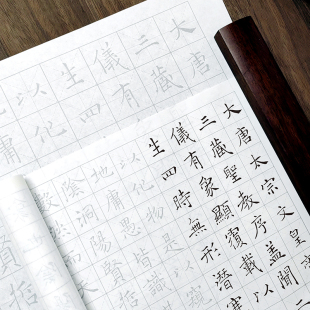 大唐
三藏
儀有
生四
以化
庸
大唐太宗文皇
三藏聖教序蓋聞
儀有象顯覆載以
生四時無形潛寒
以化物是
地庸愚皆識
陰洞陽賢哲